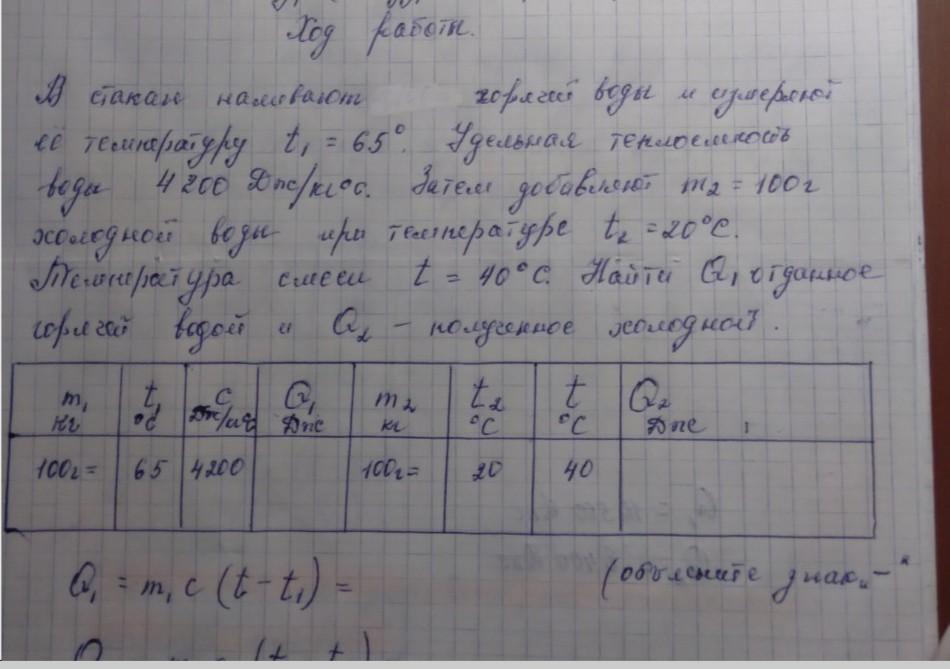 Ход работы.
В стакан наливают горячей воды и измеряют
её температуру t₁ = 65°. Удельная теплоемкость
воды 4200 Дж/кг°с. Затем добавляют m₂ = 100г
холодной воды при температуре t₂ = 20°С.
Температура смеси t = 40°С. Найти Q₁ отданное
горячей водой и Q₂ – полученное холодной.
m₁ кг t₁ °С c Дж/кг°С Q₁ Дж m₂ кг t₂ °С t °С Q₂ Дж
100г= 65 4200 100г= 20 40
Q₁ = m₁ c (t – t₁) = (объясните знак „–“